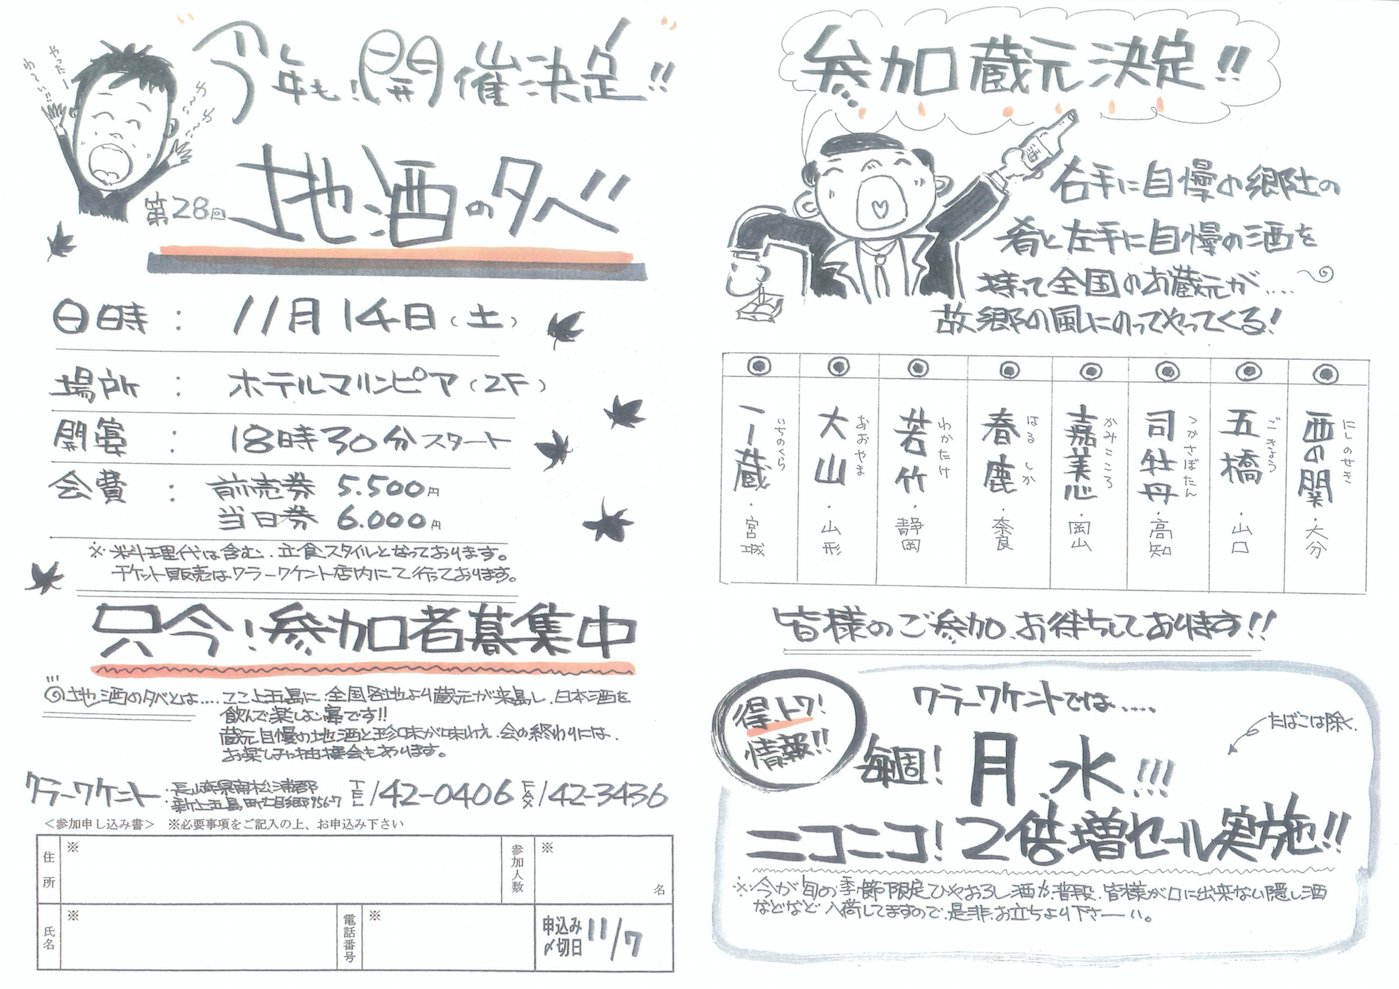 やったー
わ〜〜い
今年も！開催決定!!
第28回 地酒の夕べ
日時：11月14日（土）
場所：ホテルマリンピア（2F）
開宴：18時30分スタート
会費：前売券 5.500円
当日券 6.000円
※料理代は含む．立食スタイルとなっております。
チケット販売はクラーワケント店内にて行っております。
只今！参加者募集中
◎地酒の夕べとは‥‥ここ上五島に、全国各地より蔵元が来島し、日本酒を
飲んで楽しむ宴です!!
蔵元自慢の地酒と珍味が味わえ、会の終わりには、
お楽しみ抽選会もあります。
クラーワケント
・長崎県南松浦郡
・新上五島町七目郷956-7
TEL/42-0406 FAX/42-3436
＜参加申し込み書＞　※必要事項をご記入の上、お申込み下さい
住所 ※ 参加人数 ※ 名
氏名 ※ 電話番号 ※ 申込み〆切日 11/7
参加蔵元決定!!
酒
右手に自慢の郷土の
肴と左手に自慢の酒を
持って全国のお蔵元が‥‥
故郷の風にのってやってくる！
西の関 にしのせき ・大分
五橋 ごきょう ・山口
司牡丹 つかさぼたん ・高知
嘉美心 かみこころ ・岡山
春鹿 はるしか ・奈良
若竹 わかたけ ・静岡
大山 おおやま ・山形
一ノ蔵 いちのくら ・宮城
皆様のご参加、お待ちしております!!
得．トク！
情報!!
クラーワケントでは‥‥‥
たばこは除く
毎週！月．水!!!
ニコニコ！2倍増セール実施!!
※今が旬の季節限定ひやおろし酒や普段、皆様が口に出来ない隠し酒
などなど入荷してますので、是非、お立ちより下さーい。